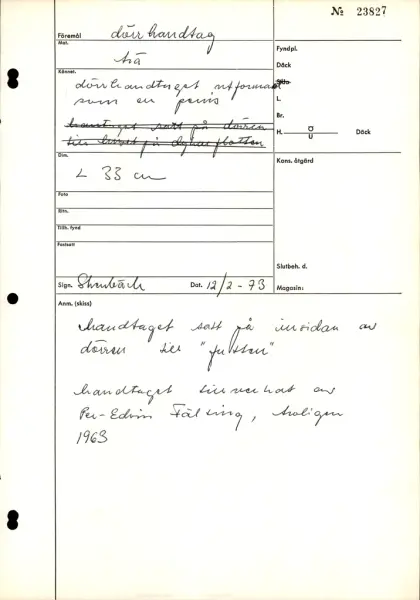 № 23827
Föremål dörrhandtag
Mat. trä
Fyndpl.
Däck
Känner.
dörrhandtaget utformat
som en penis
handtaget satt på dörren
till huset på dykarflotten
Sdo
L.
Br.
H. Ö U Däck
Dim. L 33 cm
Kons. åtgärd
Foto
Ritn.
Tillh. fynd
Fastsatt
Slutbeh. d.
Sign. Stenbäck Dat. 12/2-73 Magasin:
Anm. (skiss)
handtaget satt på insidan av
dörren till "
handtaget tillverkat av
Per-Edvin Fälting, troligen
1963